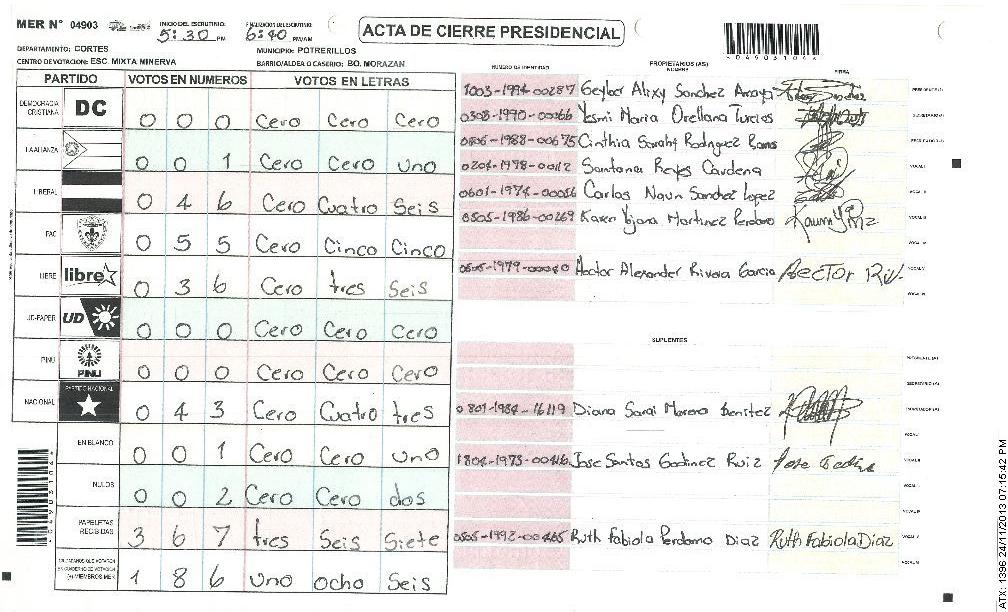 MER N° 04903 INICIO DEL ESCRUTINIO: 5:30 PM FINALIZACION DEL ESCRUTINIO: 6:40 PM/AM ACTA DE CIERRE PRESIDENCIAL
DEPARTAMENTO: CORTES MUNICIPIO: POTRERILLOS
CENTRO DE VOTACION: ESC. MIXTA MINERVA BARRIO/ALDEA O CASERIO: BO. MORAZAN
PARTIDO VOTOS EN NUMEROS VOTOS EN LETRAS
DEMOCRACIA CRISTIANA DC 0 0 0 Cero Cero Cero
LA ALIANZA 0 0 1 Cero Cero uno
LIBERAL 0 4 6 Cero Cuatro Seis
PAC 0 5 5 Cero Cinco Cinco
LIBRE libre 0 3 6 Cero tres Seis
UD-FAPER UD 0 0 0 Cero Cero Cero
PINU PINU 0 0 0 Cero Cero Cero
NACIONAL PARTIDO NACIONAL 0 4 3 Cero Cuatro tres
EN BLANCO 0 0 1 Cero Cero uno
NULOS 0 0 2 Cero Cero dos
PAPELETAS RECIBIDAS 3 6 7 tres Seis Siete
CIUDADANOS QUE VOTARON EN CUADERNO DE VOTACION (+) MIEMBROS MER 1 8 6 uno ocho Seis
NUMERO DE IDENTIDAD PROPIETARIOS (AS) NOMBRE FIRMA
1003-1994-00287 Geyber Alixy Sanchez Amaya
0308-1970-00066 Yesmi Maria Orellana Turcios
0506-1988-00675 Cinthia Sarahy Rodriguez Ramos
0204-1978-00112 Santana Reyes Cardena VOCAL I
0601-1974-00056 Carlos Naun Sanchez Lopez VOCAL II
0505-1986-00269 Karen Yojana Martinez Perdomo VOCAL III
VOCAL IV
Hector Alexander Rivera Garcia Hector Riv. VOCAL V
VOCAL VI
SUPLENTES
PRESIDENTE (A)
SECRETARIO (A)
0801-1984-16119 Diana Sarai Moreno Benitez ESCRUTADOR (A)
VOCAL I
1804-1973-00416 Jose Santos Godinez Ruiz VOCAL II
0505-1992-00465 Ruth Fabiola Perdomo Diaz Ruth Fabiola Diaz VOCAL V
VOCAL VI
ATX: 1396 24/11/2013 07:15:42 PM